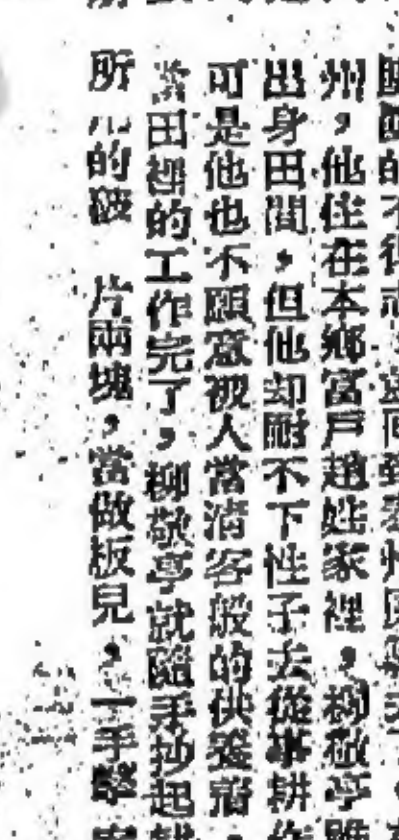 的不得
州，他住在本鄉富戶趙姓家裡，柳敬亭雖
出身田間，但他却耐不下性子去從事耕
可是他也不願意被人當清客般的供養
當田裡的工作完了，柳敬亭就隨手抄起
所 的破 片兩塊，當做板見，一手擊